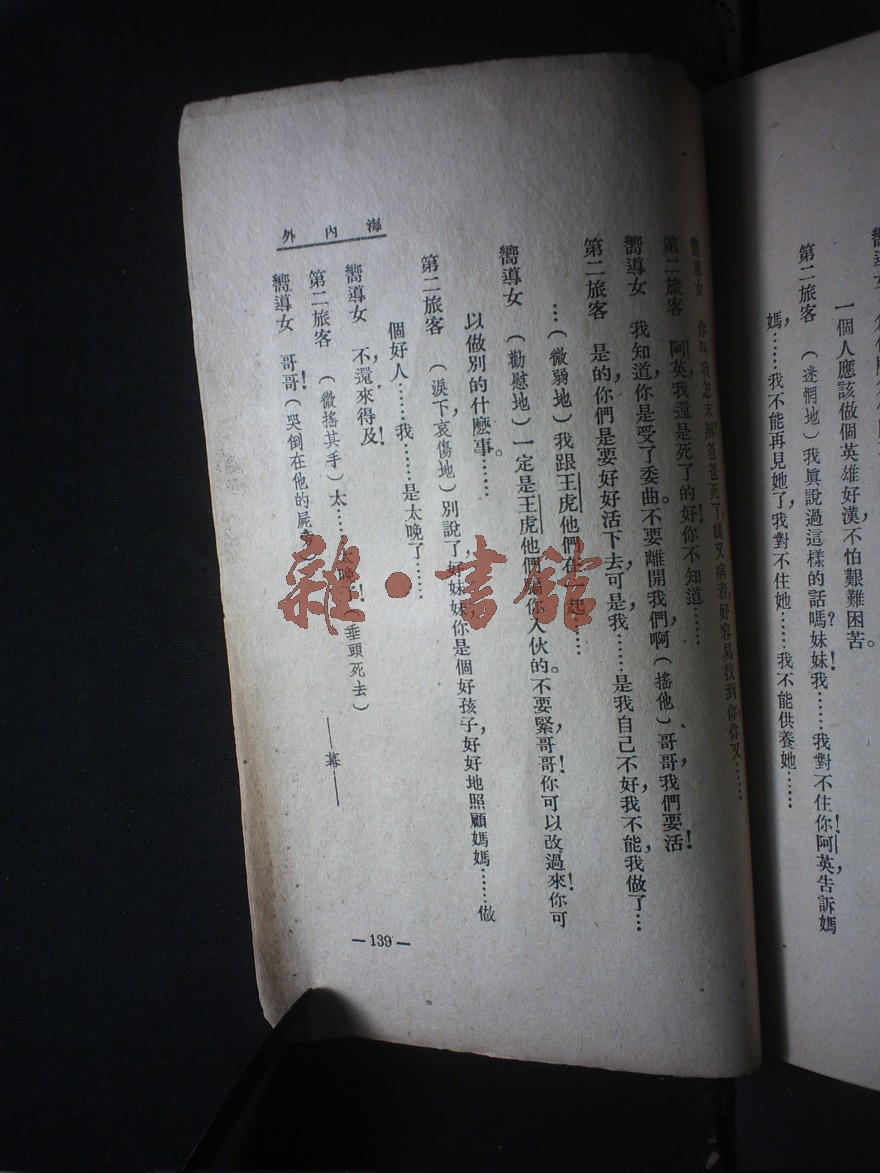 嚮導女
一個人應該做個英雄好漢，不怕艱難困苦。
第二旅客　（迷惘地）我眞說過這樣的話嗎？妹妹！我……我對不住你！阿英，告訴媽
媽，……我不能再見她了，我對不住她……我不能供養她……
嚮導女　你叫我怎末辦？爸爸死了，媽又病着，好容易找到你，你又……
第二旅客　阿英，我還是死了的好！你不知道……
嚮導女　我知道你是受了委曲。不要離開我們啊，（搖他）哥哥，我們要活！
第二旅客　是的，你們是要好好活下去，可是，我……是我自己不好，我不能，我做了…
…（微弱地）我跟王虎他們在一起……
嚮導女　（勸慰地）一定是王虎他們 你入伙的。不要緊，哥哥！你可以改過來！你可
以做別的什麽事。
第二旅客　（淚下，哀傷地）別說了，好妹妹，你是個好孩子，好好地照顧媽媽……做
個好人……我……是太晚了……
嚮導女　不，還來得及！
第二旅客　（微搖其手）太……太晚了！（垂頭死去）
嚮導女　哥哥！（哭倒在他的屍
——幕——
海內外
—139—
雜·書館